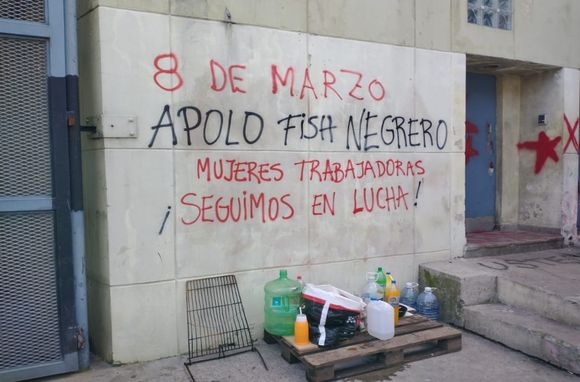 8 DE MARZO
APOLO FISH NEGRERO
MUJERES TRABAJADORAS
¡SEGUIMOS EN LUCHA!